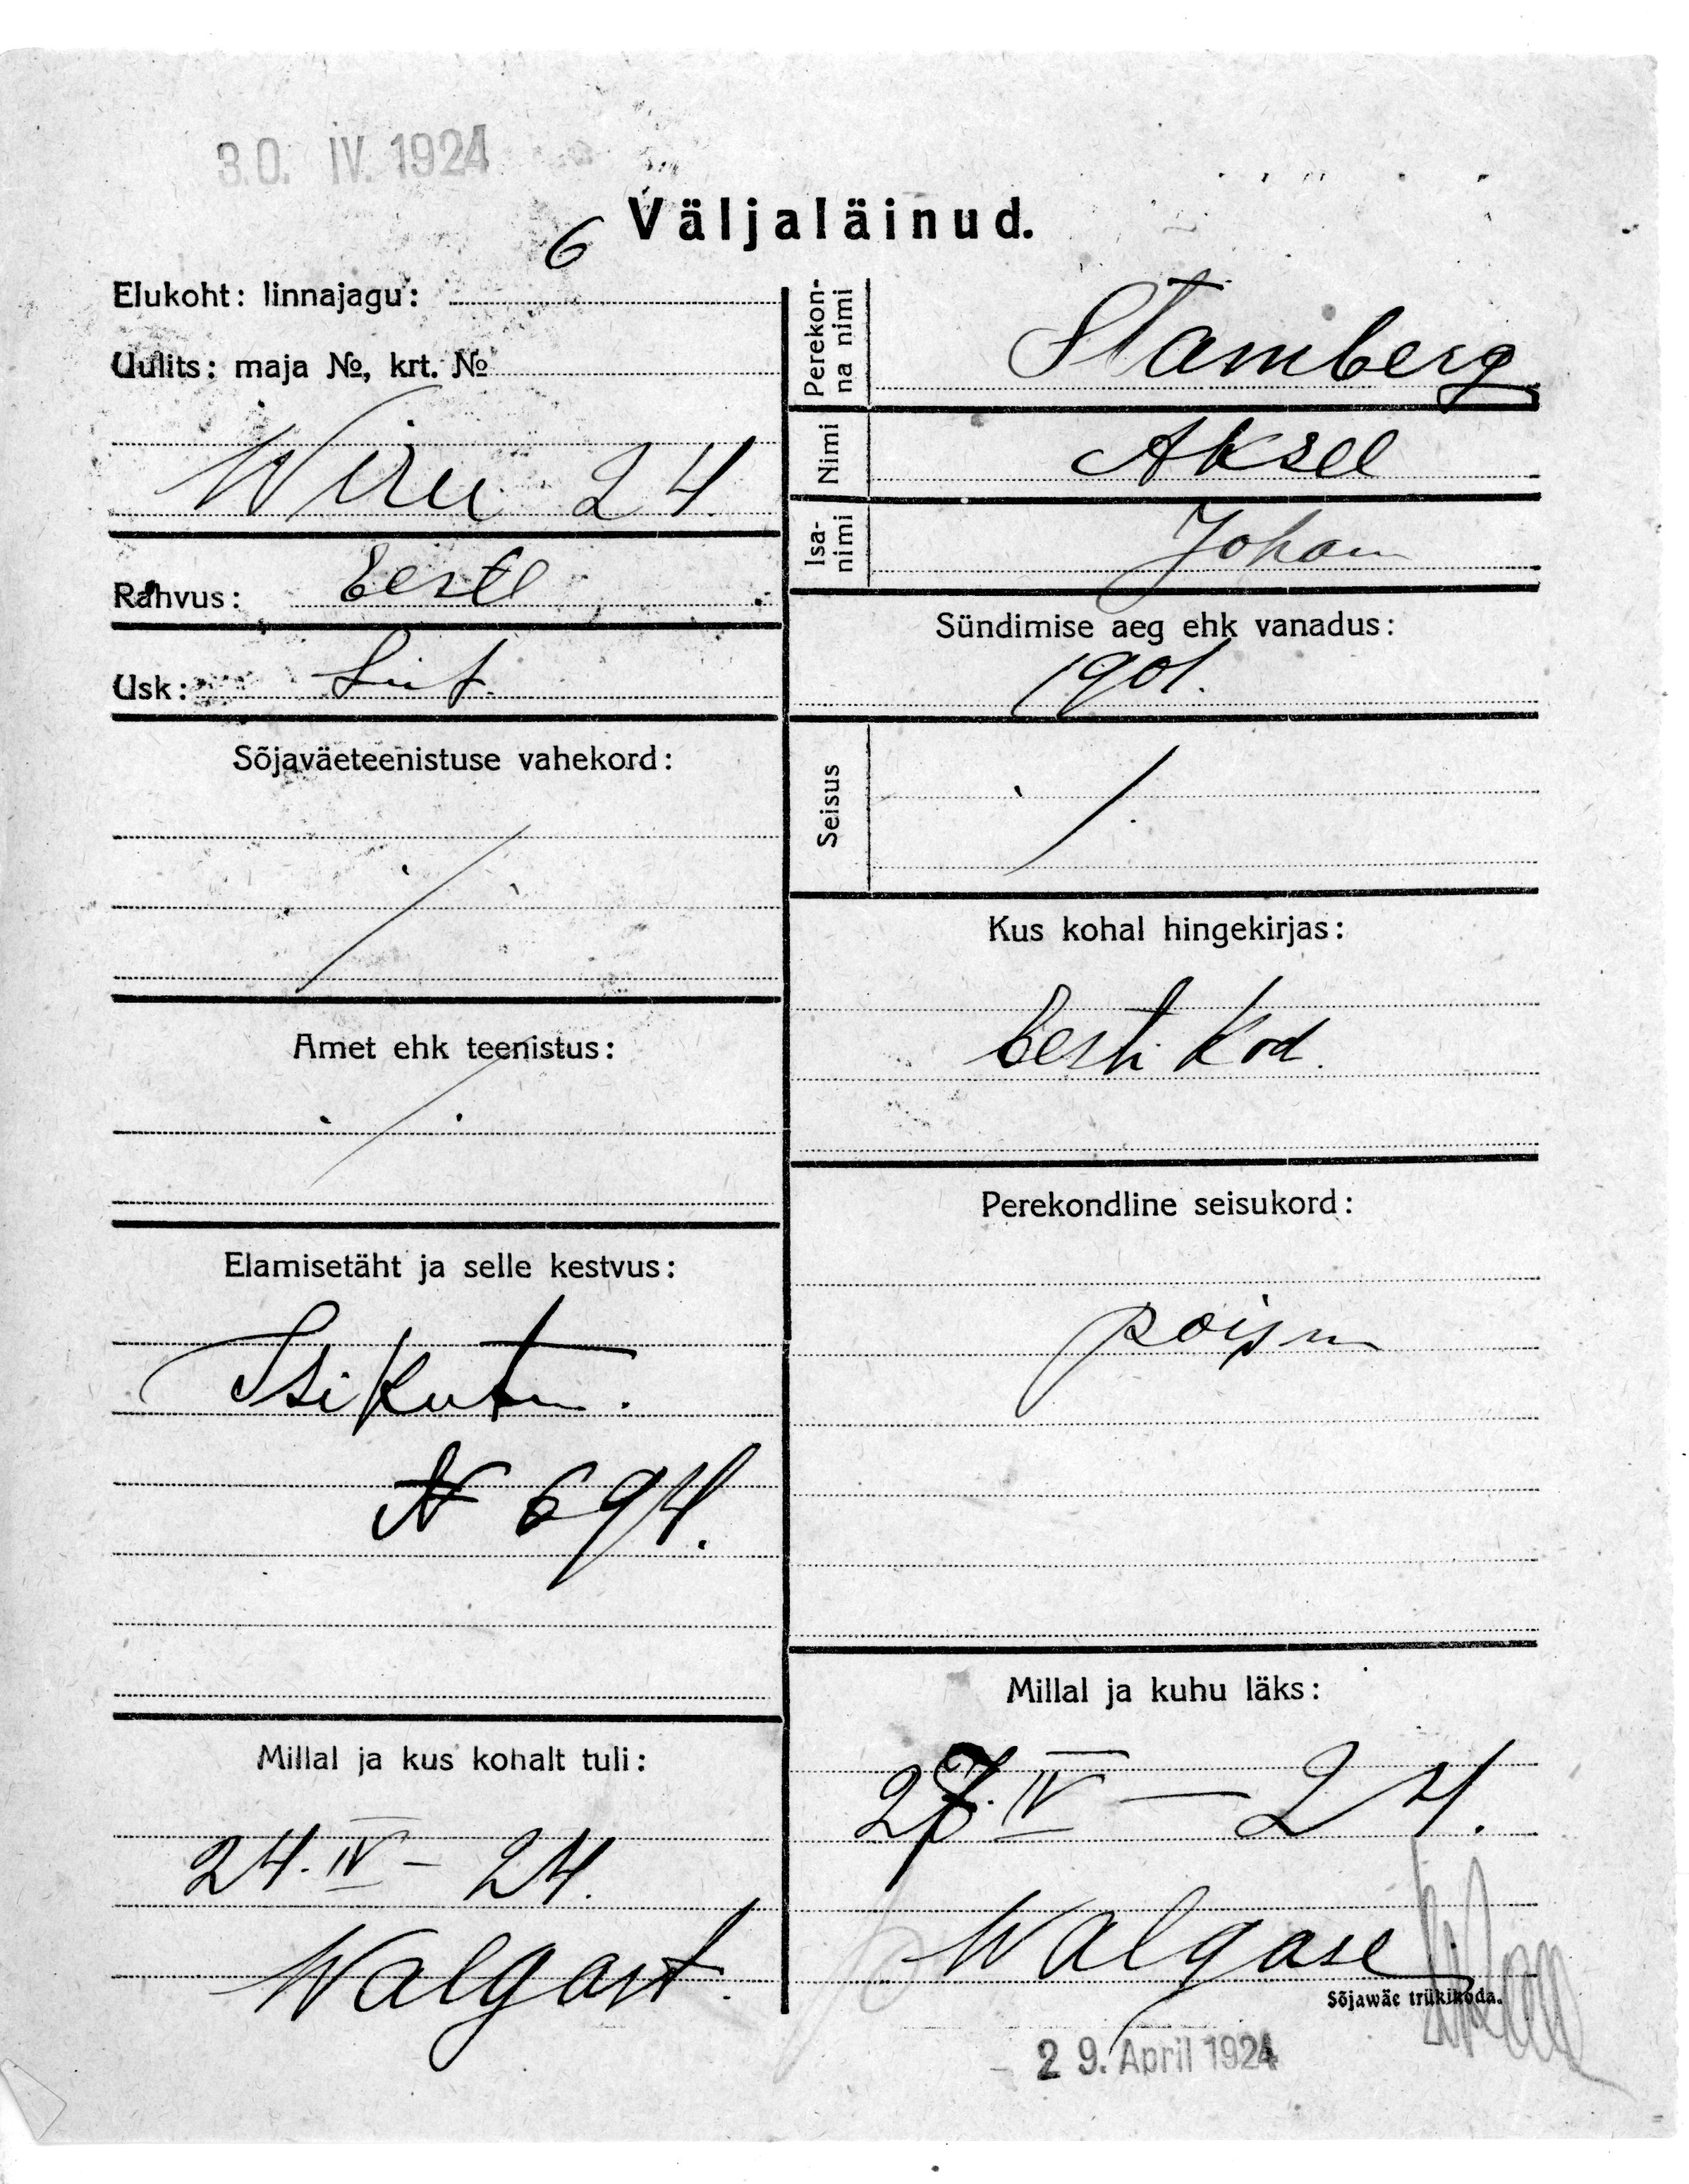 30. IV. 1924
Väljaläinud.
6
Elukoht: linnajagu:
Uulits: maja №, krt. №
Wiru 24.
Rahvus: Eesti
Usk: Lut.
Sõjaväeteenistuse vahekord:
/
Amet ehk teenistus:
/
Elamisetäht ja selle kestvus:
Isikutun.
N 694.
Millal ja kus kohalt tuli:
24. IV - 24.
Walgast.
Perekon-
na nimi
Stamberg
Nimi
Aksel
Isa-
nimi
Johan
Sündimise aeg ehk vanadus:
1901.
Seisus
/
Kus kohal hingekirjas:
Eesti Kod.
Perekondline seisukord:
poism
Millal ja kuhu läks:
IV — 24.
Walgase
Sõjawäe trükikoda.
29. April 1924